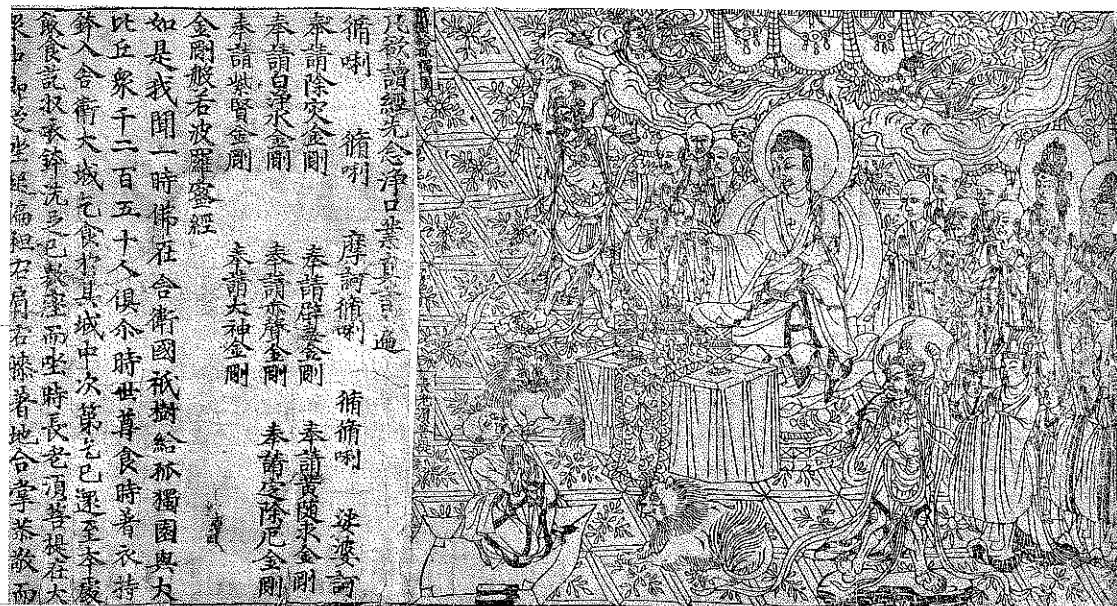 長老須菩提
凡欲讀經先念淨口業真言遍
脩唎 脩唎 摩訶脩唎 脩脩唎 娑婆訶
奉請除灾金剛 奉請辟毒金剛 奉請黃随求金剛
奉請白淨水金剛 奉請赤聲金剛 奉請定除厄金剛
奉請紫賢金剛 奉請大神金剛
金剛般若波羅蜜經
如是我聞一時佛在舍衛國祇樹給孤獨園與大
比丘衆千二百五十人俱尒時世尊食時著衣持
鉢入舍衛大城乞食於其城中次第乞已還至本處
飯食訖収衣鉢洗足已敷座而坐時長老湏菩提在大
衆中即從座起偏袒右肩右膝著地合掌恭敬而